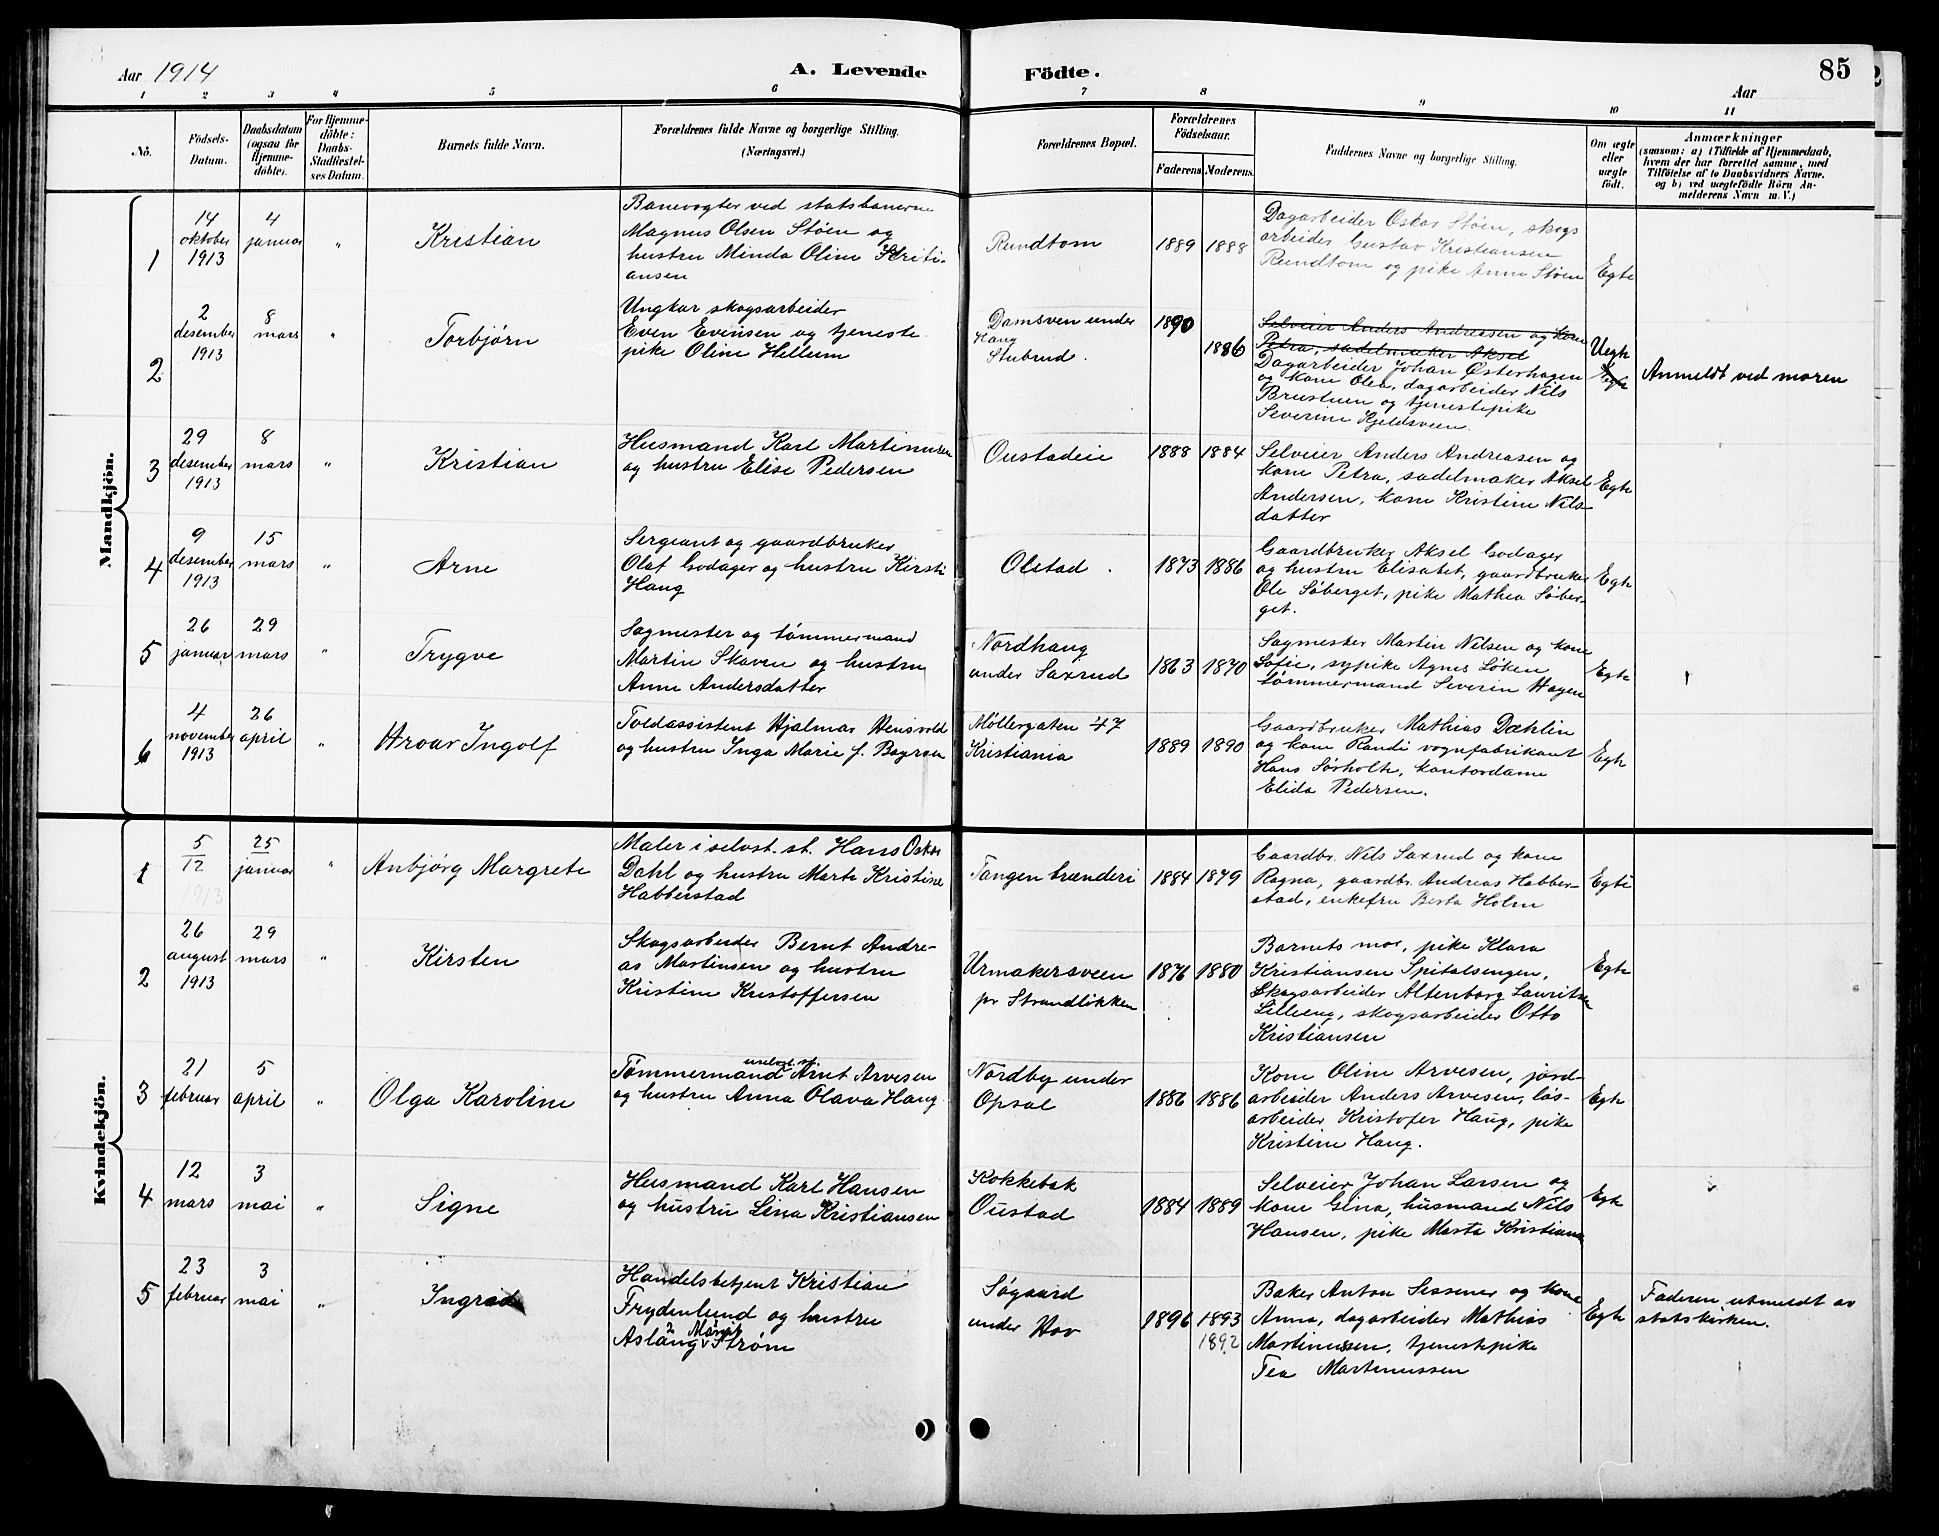 Aar 1914
A. Levende Födte.
85
Aar
1 2 3 4 5 6 7 8 9 10 11
No.
Födsels-
Datum.
Daabsdatum
(ogsaa for
Hjemme-
döbte).
For Hjemme-
döbte:
Daabs-
Stadfæstel-
ses Datum.
Barnets fulde Navn.
Forældrenes fulde Navne og borgerlige Stilling.
(Næringsvei.)
Forældrenes Bopæl.
Forældrenes
Födselsaar.
Faderens
Moderens
Faddernes Navne og borgerlige Stilling.
Om ægte
eller
uægte
födt.
Anmærkninger
(saasom: a) i Tilfælde af Hjemmedaab,
hvem der har forrettet samme, med
Tilföielse af to Daabsvidners Navne.
og b) ved uægtefödte Börn An-
melderens Navn m. V.)
Mandkjön.
1
14
oktober
1913
4
januar
"
Kristian
Banevogter ved statsbanerne
Magnus Olsen Støen og
hustru Minda Oline Kristi-
ansen
Rundtom
1889 1888
Dagarbeider Oskar Støen, skogs
arbeider Gustav Kristiansen
Rundtom og pike Anna Støen
Egte
2
2
desember
1913
8
mars
"
Torbjørn
Ungkar skogsarbeider
Even Evensen og tjeneste
pike Oline Hellum
Damsven under
Haug
Stubrud.
1890
1886
Selveier Anders Andreasen og kone
Petra, sadelmaker Aksel
Dagarbeider Johan Østerhagen
og kone Olea, dagarbeider Nils
Brustuen og tjenestepike
Severine Kjeldsveen.
Uegte
Egte
Anmeldt ved moren
3
29
desember
1913
8
mars
"
Kristian
Husmand Karl Martinusen
og hustru Elise Pedersen
Oustadeie
1888 1884
Selveier Anders Andreasen og
kone Petra, sadelmaker Aksel
Andersen, kone Kristine Nils-
datter
Egte
4
9
desember
1913
15
mars
"
Arne
Sergeant og gaardbruker
Olaf Godager og hustru Kirsti
Haug
Olstad.
1873 1886
Gaardbruker Aksel Godager
og hustru Elisabet, gaardbruker
Ole Søberget, pike Mathea Søber-
get.
Egte
5
26
januar
29
mars
"
Trygve
Sagmester og tømmermand
Martin Skaven og hustru
Anne Andersdatter
Nordhaug
under Saxrud
1863 1870
Sagmester Martin Nilsen og kone
Sofie, sypike Agnes Løken
tømmermand Severin Hagen
Egte
6
4
november
1913
26
april
"
Hroar Ingolf
Toldassistent Hjalmar Hensvold
og hustru Inga Marie f. Bøyrson
Møllergaten 47
Kristiania
1889 1890
Gaardbruker Mathias Dæhlin
og kone Randi vognfabrikant
Hans Sørholte, kontordame
Elida Pedersen.
Egte
Kvindekjön.
1
5
12
1913
25
januar
"
Anbjørg Margrete
Maler i selvst. st. Hans Oskar
Dahl og hustru Marte Kristine
Habberstad
Tangen brænderi
1884 1879
Gaardbr. Nils Saxrud og kone
Ragna, gaardbr. Andreas Habber-
stad, enkefru Berta Holm
Egte
2
26
august
1913
29
mars
"
Kirsten
Skogsarbeider Bernt Andre-
as Martinsen og hustru
Kristine Kristoffersen
Urmakersveen
pr Strandløkken
1876 1880
Barnets mor, pike Klara
Kristiansen Spitalsengen,
Skogsarbeider Altenborg Lauritsen
Lilleeng, skogsarbeider Otto
Kristiansen
Egte
3
21
februar
5
april
"
Olga Karoline
uselvst. st.
Tømmermand Arnt Arvesen
og hustru Anna Olava Haug
Nordby under
Opsal
1886 1886
Kone Oline Arvesen, jord-
arbeider Anders Arvesen, løs-
arbeider Kristofer Haug, pike
Kristine Haug.
Egte
4
12
mars
3
mai
"
Signe
Husmand Karl Hansen
og hustru Lina Kristiansen
Kokkebak
Oustad
1884 1889
Selveier Johan Larsen og
kone Gina, husmand Nils
Hansen, pike Marta Kristians
Egte
5
23
februar
3
mai
"
Ingrid
Handelsbetjent Kristian
Frydenlund og hustru
Aslaug Marit Strøm
Søgaard
under Hov
1896 1893
1892
Baker Anton Sessener og kone
Anna, dagarbeider Mathias
Martinussen, tjenestepike
Tea Martinussen
Egte
Faderen utmeldt av
statskirken.